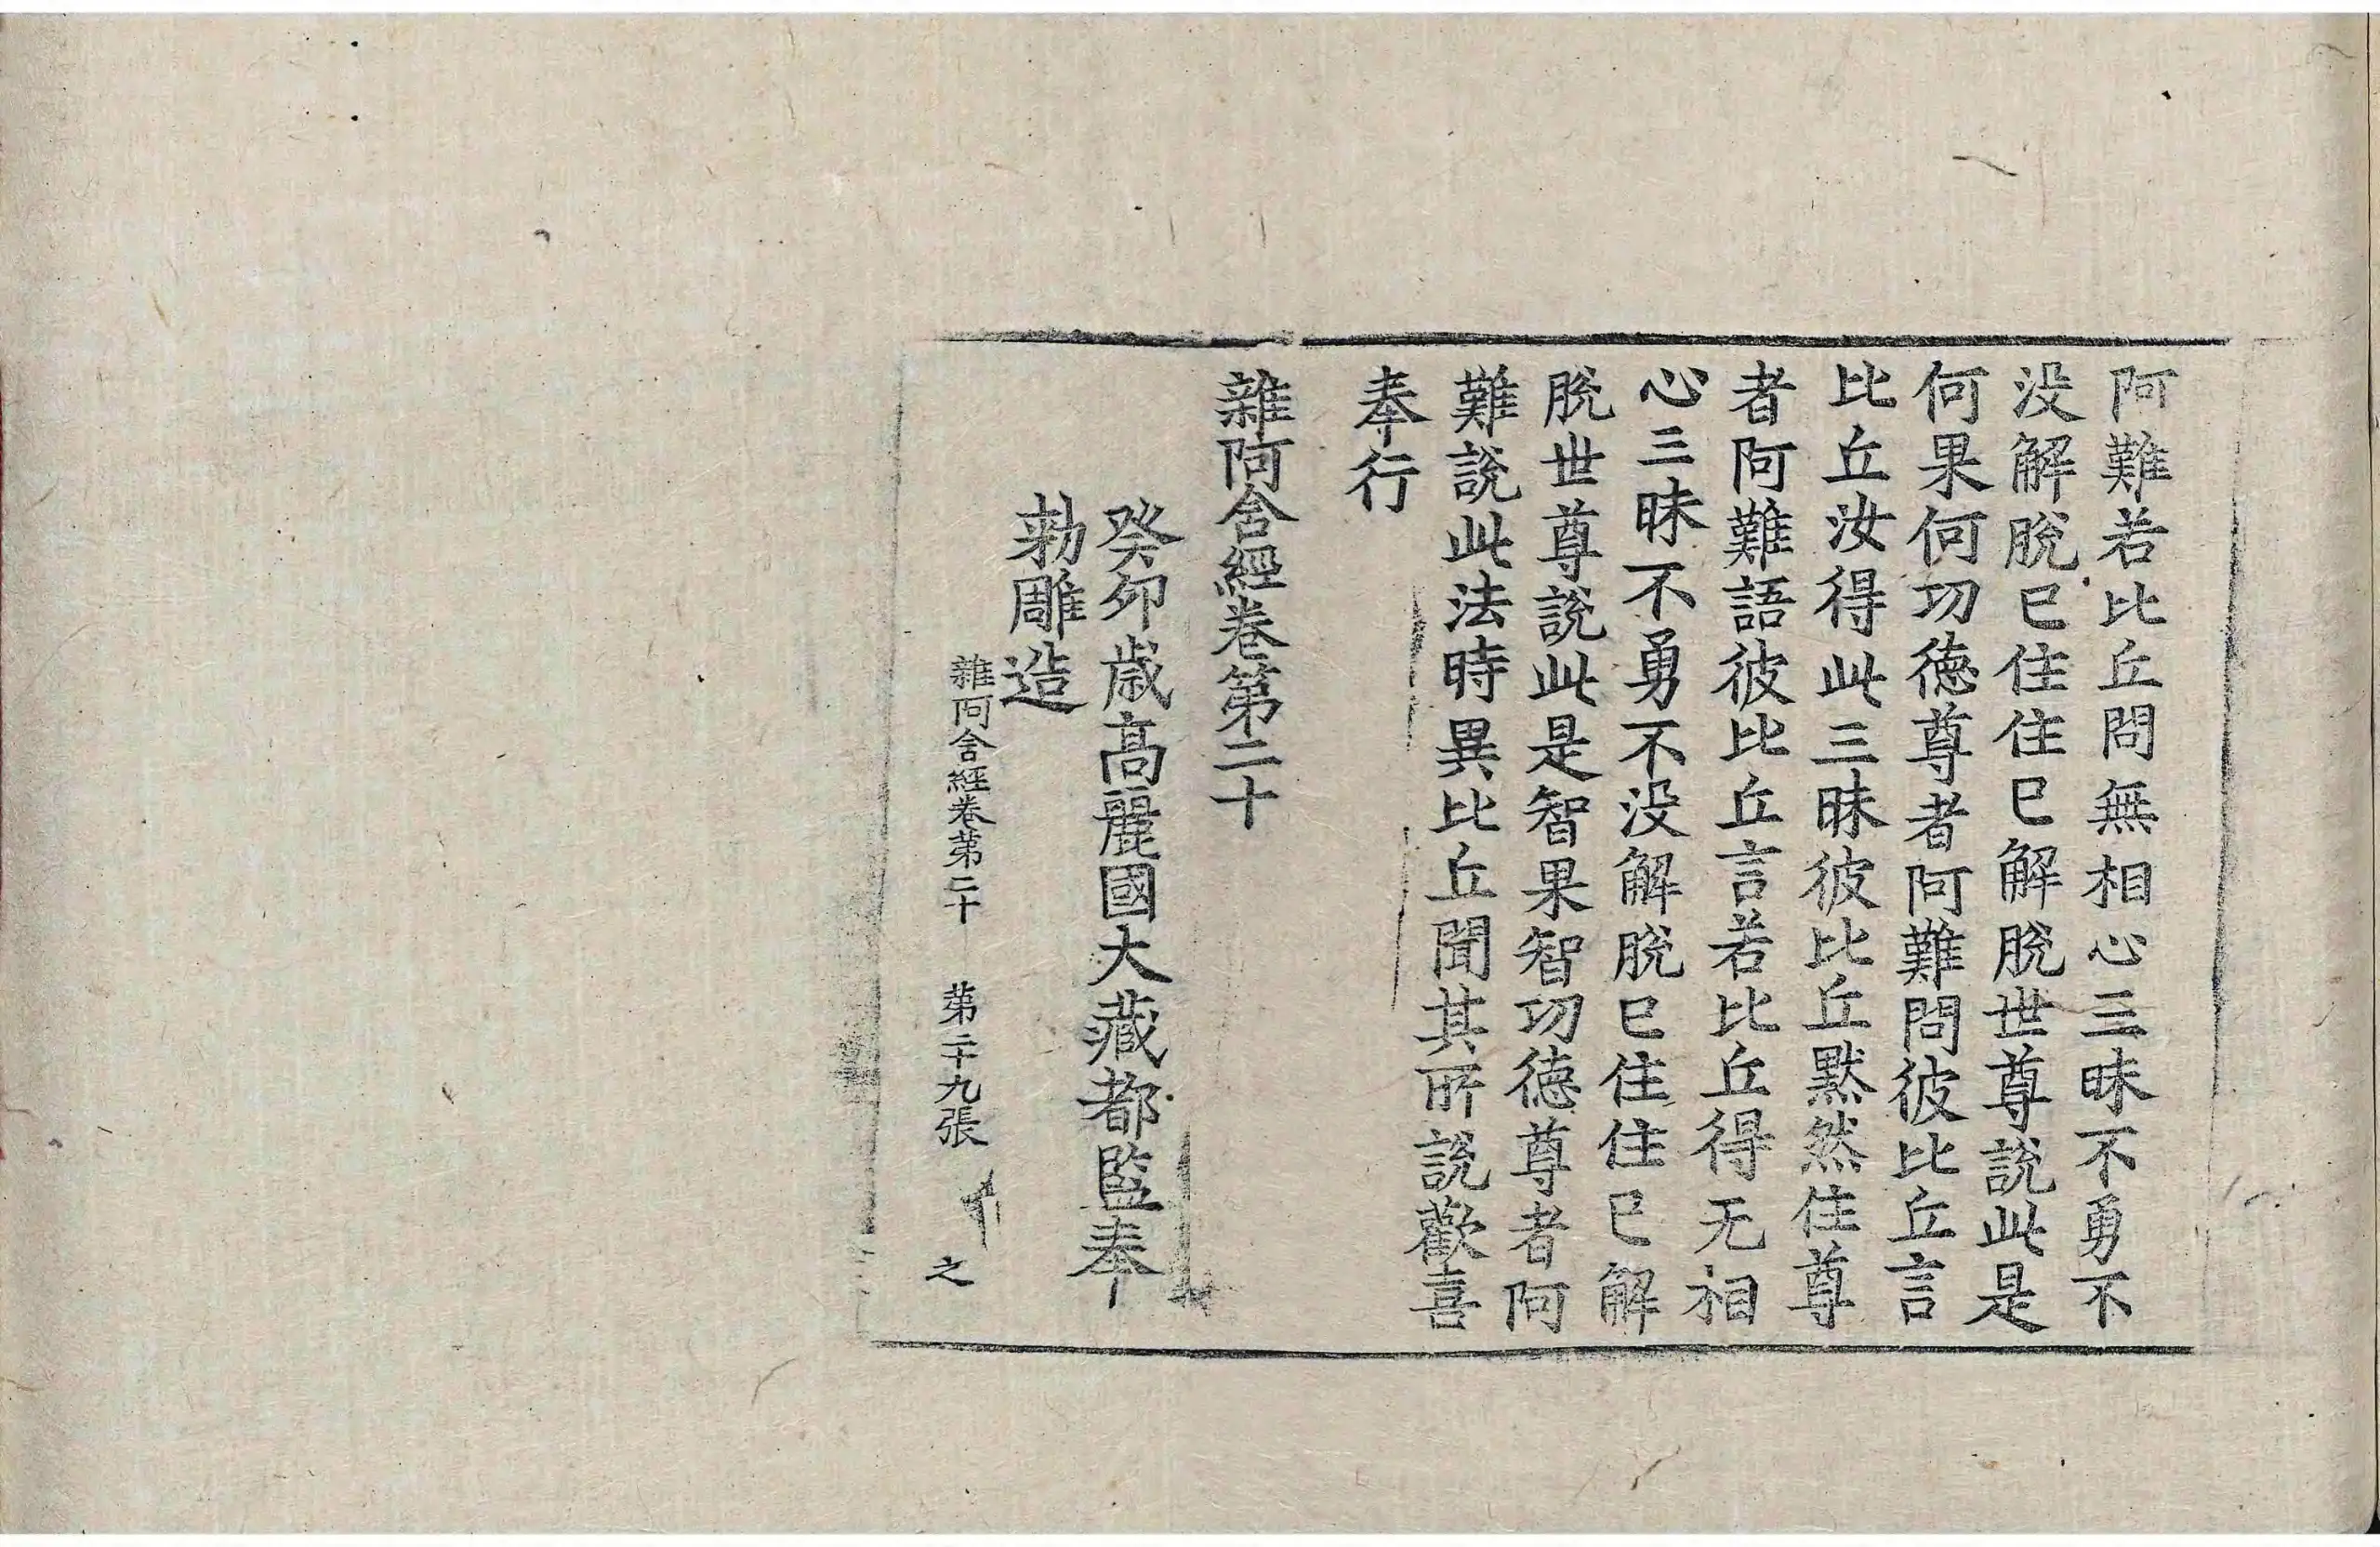 阿難若比丘問無相心三昧不勇不
没解脫已住住已解脫世尊說此是
何果何功徳尊者阿難問彼比丘言
比丘汝得此三昧彼比丘黙然住尊
者阿難語彼比丘言若比丘得无相
心三昧不勇不没解脫已住住已解
脫世尊說此是智果智功徳尊者阿
難說此法時異比丘聞其所說歡喜
奉行
雜阿含經卷第二十
癸卯歳髙麗國大藏都監奉
勑雕造
雜阿含經卷第二十 第二十九張 之